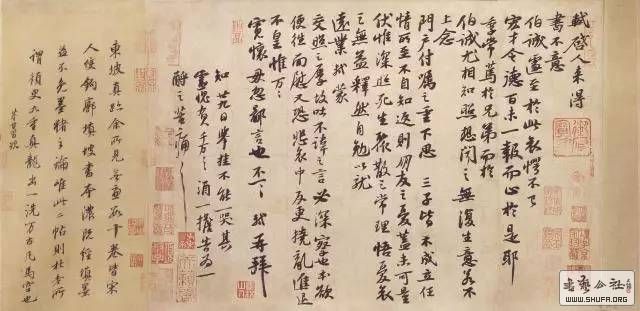 軾啓人来得
書不意
伯誠遽至於此哀愕不已
宏才令德百未一報而止於是耶
季常篤於兄弟而於
伯誠尤相知照想聞之無復生意若不
上念
門戶付囑之重下思三子皆不成立任
情所至不自知返則朋友之憂蓋未可量
伏惟深照死生聚散之常理悟憂哀
之無益釋然自勉以就
遠業軾蒙
交照之厚故吐不諱之言必深察也本欲
便往面慰又恐悲哀中反更撓亂進退
不皇惟万万
寬懷毋忽鄙言也不一一軾再拜
知廿九日舉掛不能一哭其
靈愧負千万千万酒一擔告為一
酹之苦痛苦痛
東坡真跡余所見無慮數十卷皆宋
人雙鉤廓填坡書本濃既經填墨
益不免墨豬之論唯此二帖則杜老所
謂須臾九重真龍出一洗萬古凡馬空也
董其昌題
書藝公社
WWW.SHUFA.ORG